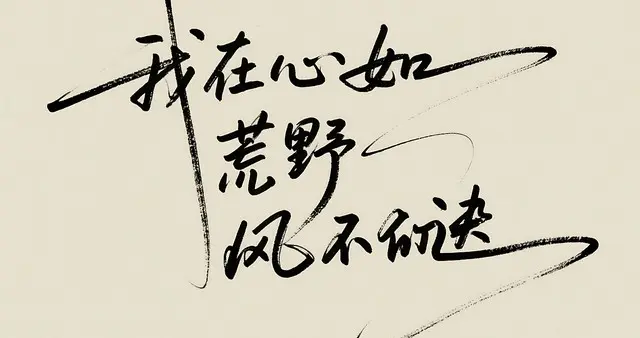 我在心如
荒野
风不